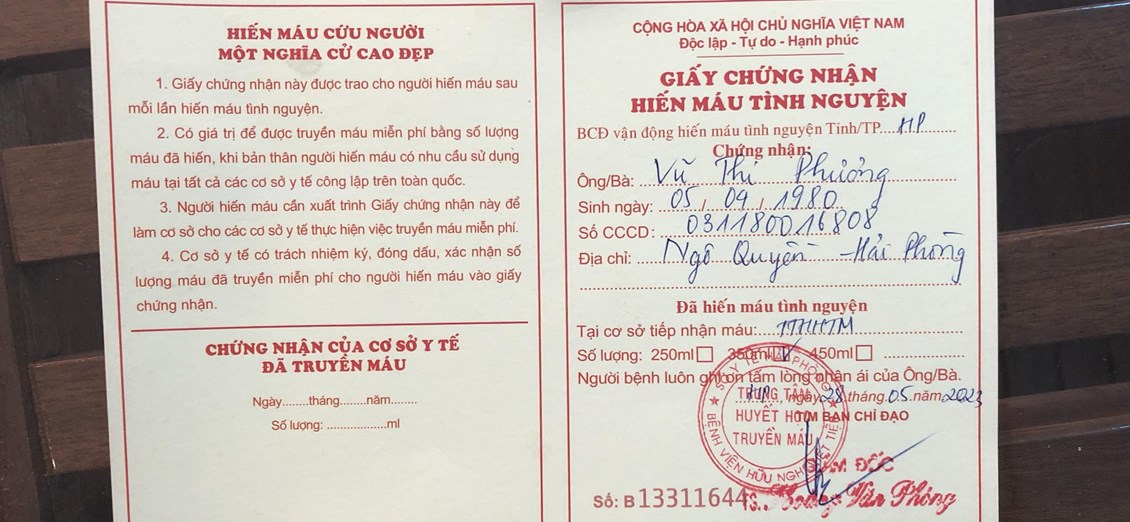 HIẾN MÁU CỨU NGƯỜI
MỘT NGHĨA CỬ CAO ĐẸP
1. Giấy chứng nhận này được trao cho người hiến máu sau
mỗi lần hiến máu tình nguyện.
2. Có giá trị để được truyền máu miễn phí bằng số lượng
máu đã hiến, khi bản thân người hiến máu có nhu cầu sử dụng
máu tại tất cả các cơ sở y tế công lập trên toàn quốc.
3. Người hiến máu cần xuất trình Giấy chứng nhận này để
làm cơ sở cho các cơ sở y tế thực hiện việc truyền máu miễn phí.
4. Cơ sở y tế có trách nhiệm ký, đóng dấu, xác nhận số
lượng máu đã truyền miễn phí cho người hiến máu vào giấy
chứng nhận.
CHỨNG NHẬN CỦA CƠ SỞ Y TẾ
ĐÃ TRUYỀN MÁU
Ngày........tháng........năm........
Số lượng: ..................ml
CỘNG HÒA XÃ HỘI CHỦ NGHĨA VIỆT NAM
Độc lập - Tự do - Hạnh phúc
GIẤY CHỨNG NHẬN
HIẾN MÁU TÌNH NGUYỆN
BCĐ vận động hiến máu tình nguyện Tỉnh/TP....HP......
Chứng nhận:
Ông/Bà: Vũ Thị Phương
Sinh ngày: 05 / 09 / 1980
Số CCCD: 031180016808
Địa chỉ: Ngô Quyền - Hải Phòng
Đã hiến máu tình nguyện
Tại cơ sở tiếp nhận máu: TTHHTM
Số lượng: 250ml☐ 350ml☑ 450ml☐ ..................
Người bệnh luôn ghi ơn tấm lòng nhân ái của Ông/Bà.
HP, ngày 28 tháng 05 năm 2023
TM BAN CHỈ ĐẠO
SỞ Y TẾ HẢI PHÒNG
TRUNG TÂM
HUYẾT HỌC
TRUYỀN MÁU
BỆNH VIỆN HỮU NGHỊ VIỆT TIỆP
GIÁM ĐỐC
Số: B 13311644
Ts. Hoàng Văn Phóng